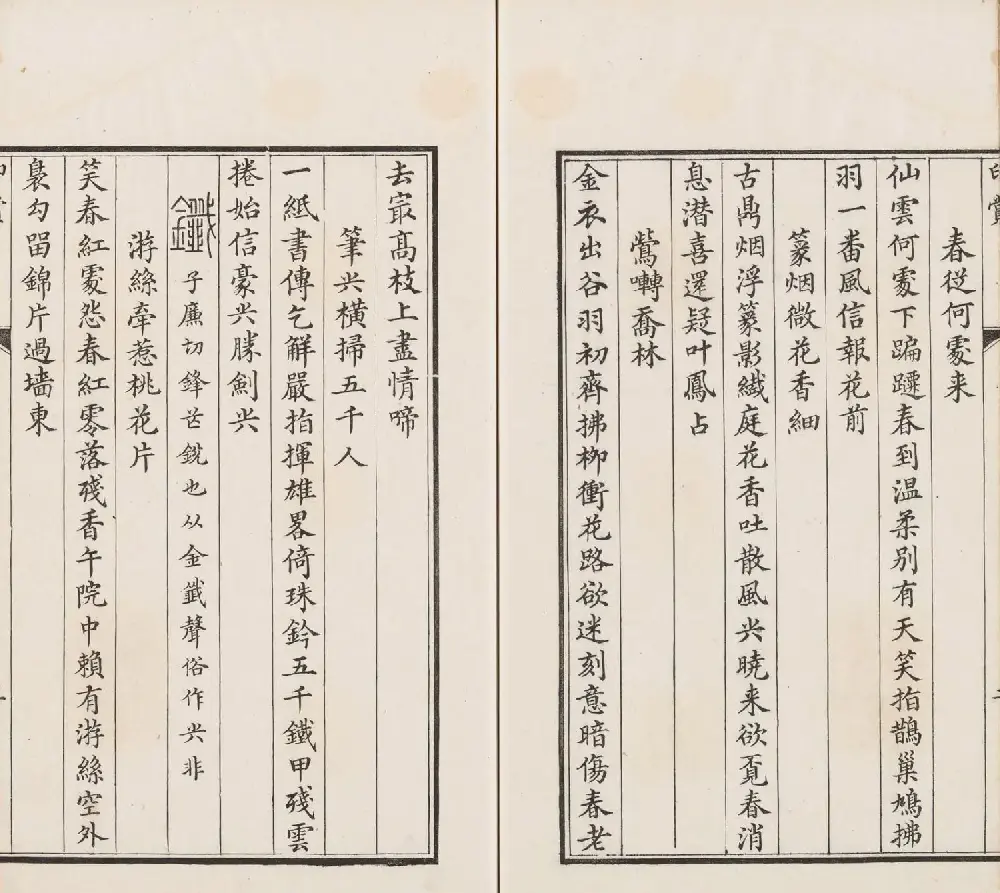 春從何處来
仙雲何處下蹁躚春到温柔别有天笑指鵲巢鳩拂
羽一番風信報花前
篆烟微花香細
古鼎烟浮篆影纎庭花香吐散風尖曉来欲覓春消
息潜喜還疑叶鳳占
鶯囀喬林
金衣出谷羽初齊拂柳衝花路欲迷刻意暗傷春老
去㝡高枝上盡情啼
筆尖橫掃五千人
一紙書傳乞解嚴指揮雄畧倚珠鈐五千鐵甲殘雲
捲始信豪尖勝劍尖
鑯子廉切鋒芒銳也从金韱聲俗作尖非
游絲牽惹桃花片
笑春紅處怨春紅零落殘香午院中賴有游絲空外
裊勾畱錦片過墻東